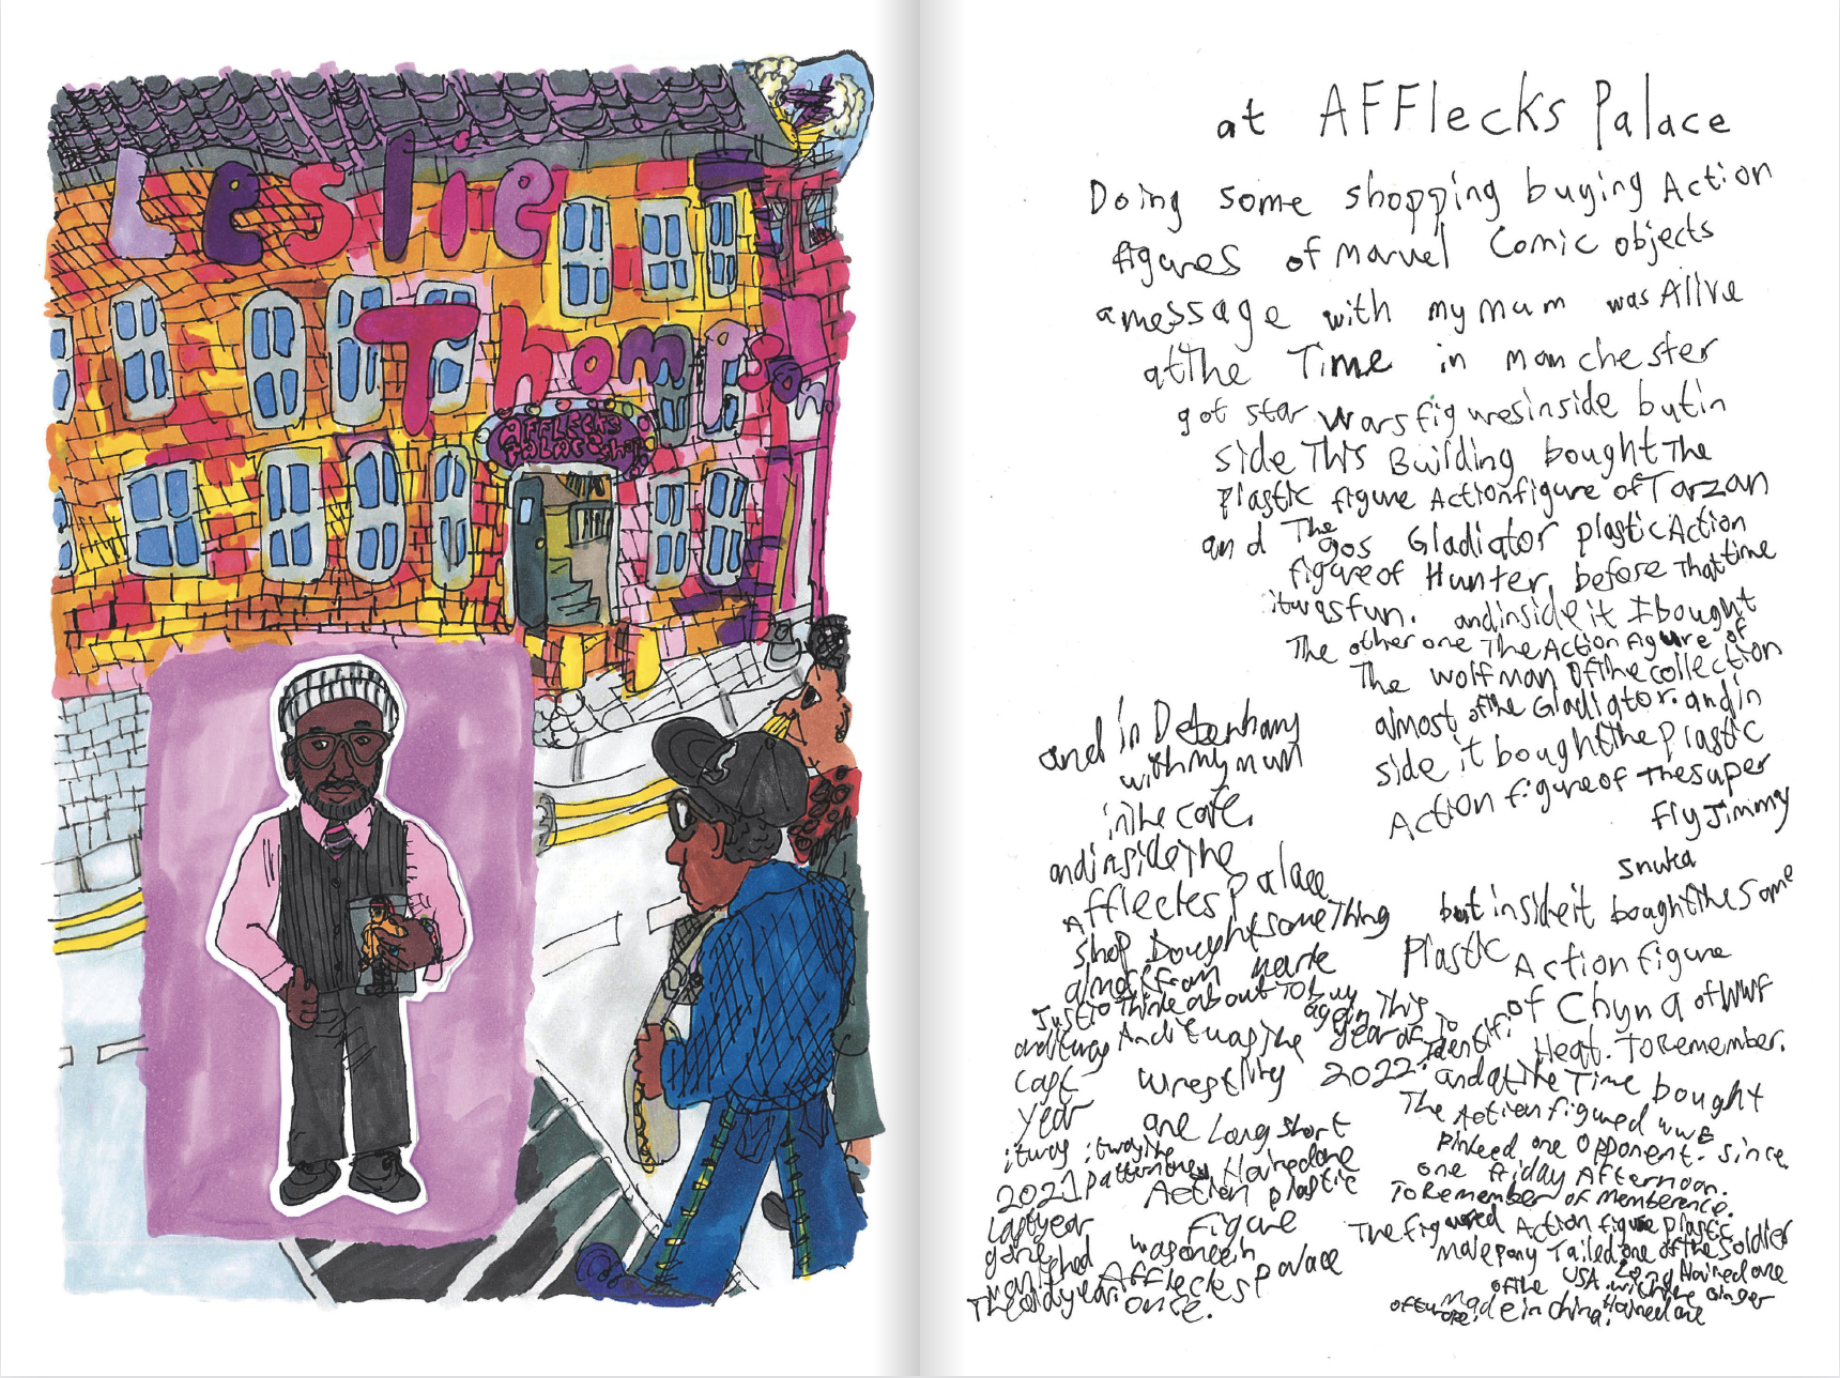 Leslie
Thompson
AFFLECKS
Palace shop
at AFFlecks Palace
Doing some shopping buying Action
figures of Marvel Comic objects
a message with my mum was Alive
at The Time in manchester
got star wars figures inside but in
side This Building bought The
Plastic figure Action figure of Tarzan
and The gos Gladiator plastic Action
figure of Hunter, before That time
it was fun. and inside it I bought
The other one The Action Figure of
The wolfman of the collection
almost of the Gladiator. and in
side it bought the plastic
Action figure of The super
Fly Jimmy
Snuka
but inside it bought the some
Plastic Action figure
of Chyna of WWF
Heat. To Remember.
and at the Time bought
The Action figured wwe
Pinked one opponent. since
one friday Afternoon.
To Remember of memberence.
The figured Action figure plastic
male pony Tailed one of the Soldier
of the USA with the Long Haired one
ginger
of europe, made in china, Haired one
and in Debenhams
with my mum
in the cafe.
and inside The
Afflecks Palace
shop Bought something
almost from
Just to Think about To buy
again This
year of
To identify
and it was And it was The
Last wrestling 2022.
year one Long short
it was it was the Haired one
2021 pattern they Action plastic
Last year Figure
gone was one en
vanished Afflecks palace
The old year once.